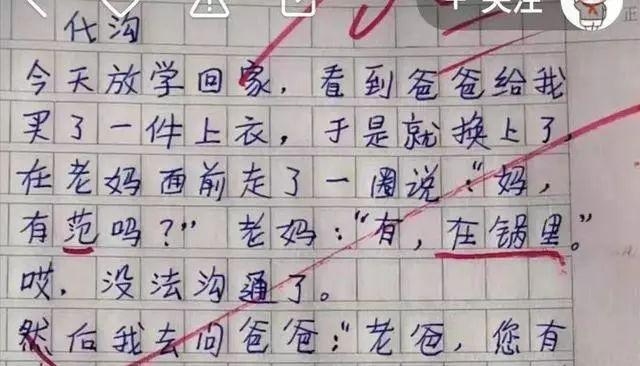 + 关注
正
代沟
今天放学回家，看到爸爸给我
买了一件上衣，于是就换上了，
在老妈面前走了一圈说：“妈，
有范吗？”老妈：“有，在锅里。”
哎，没法沟通了。
然后我去问爸爸：“老爸，您有